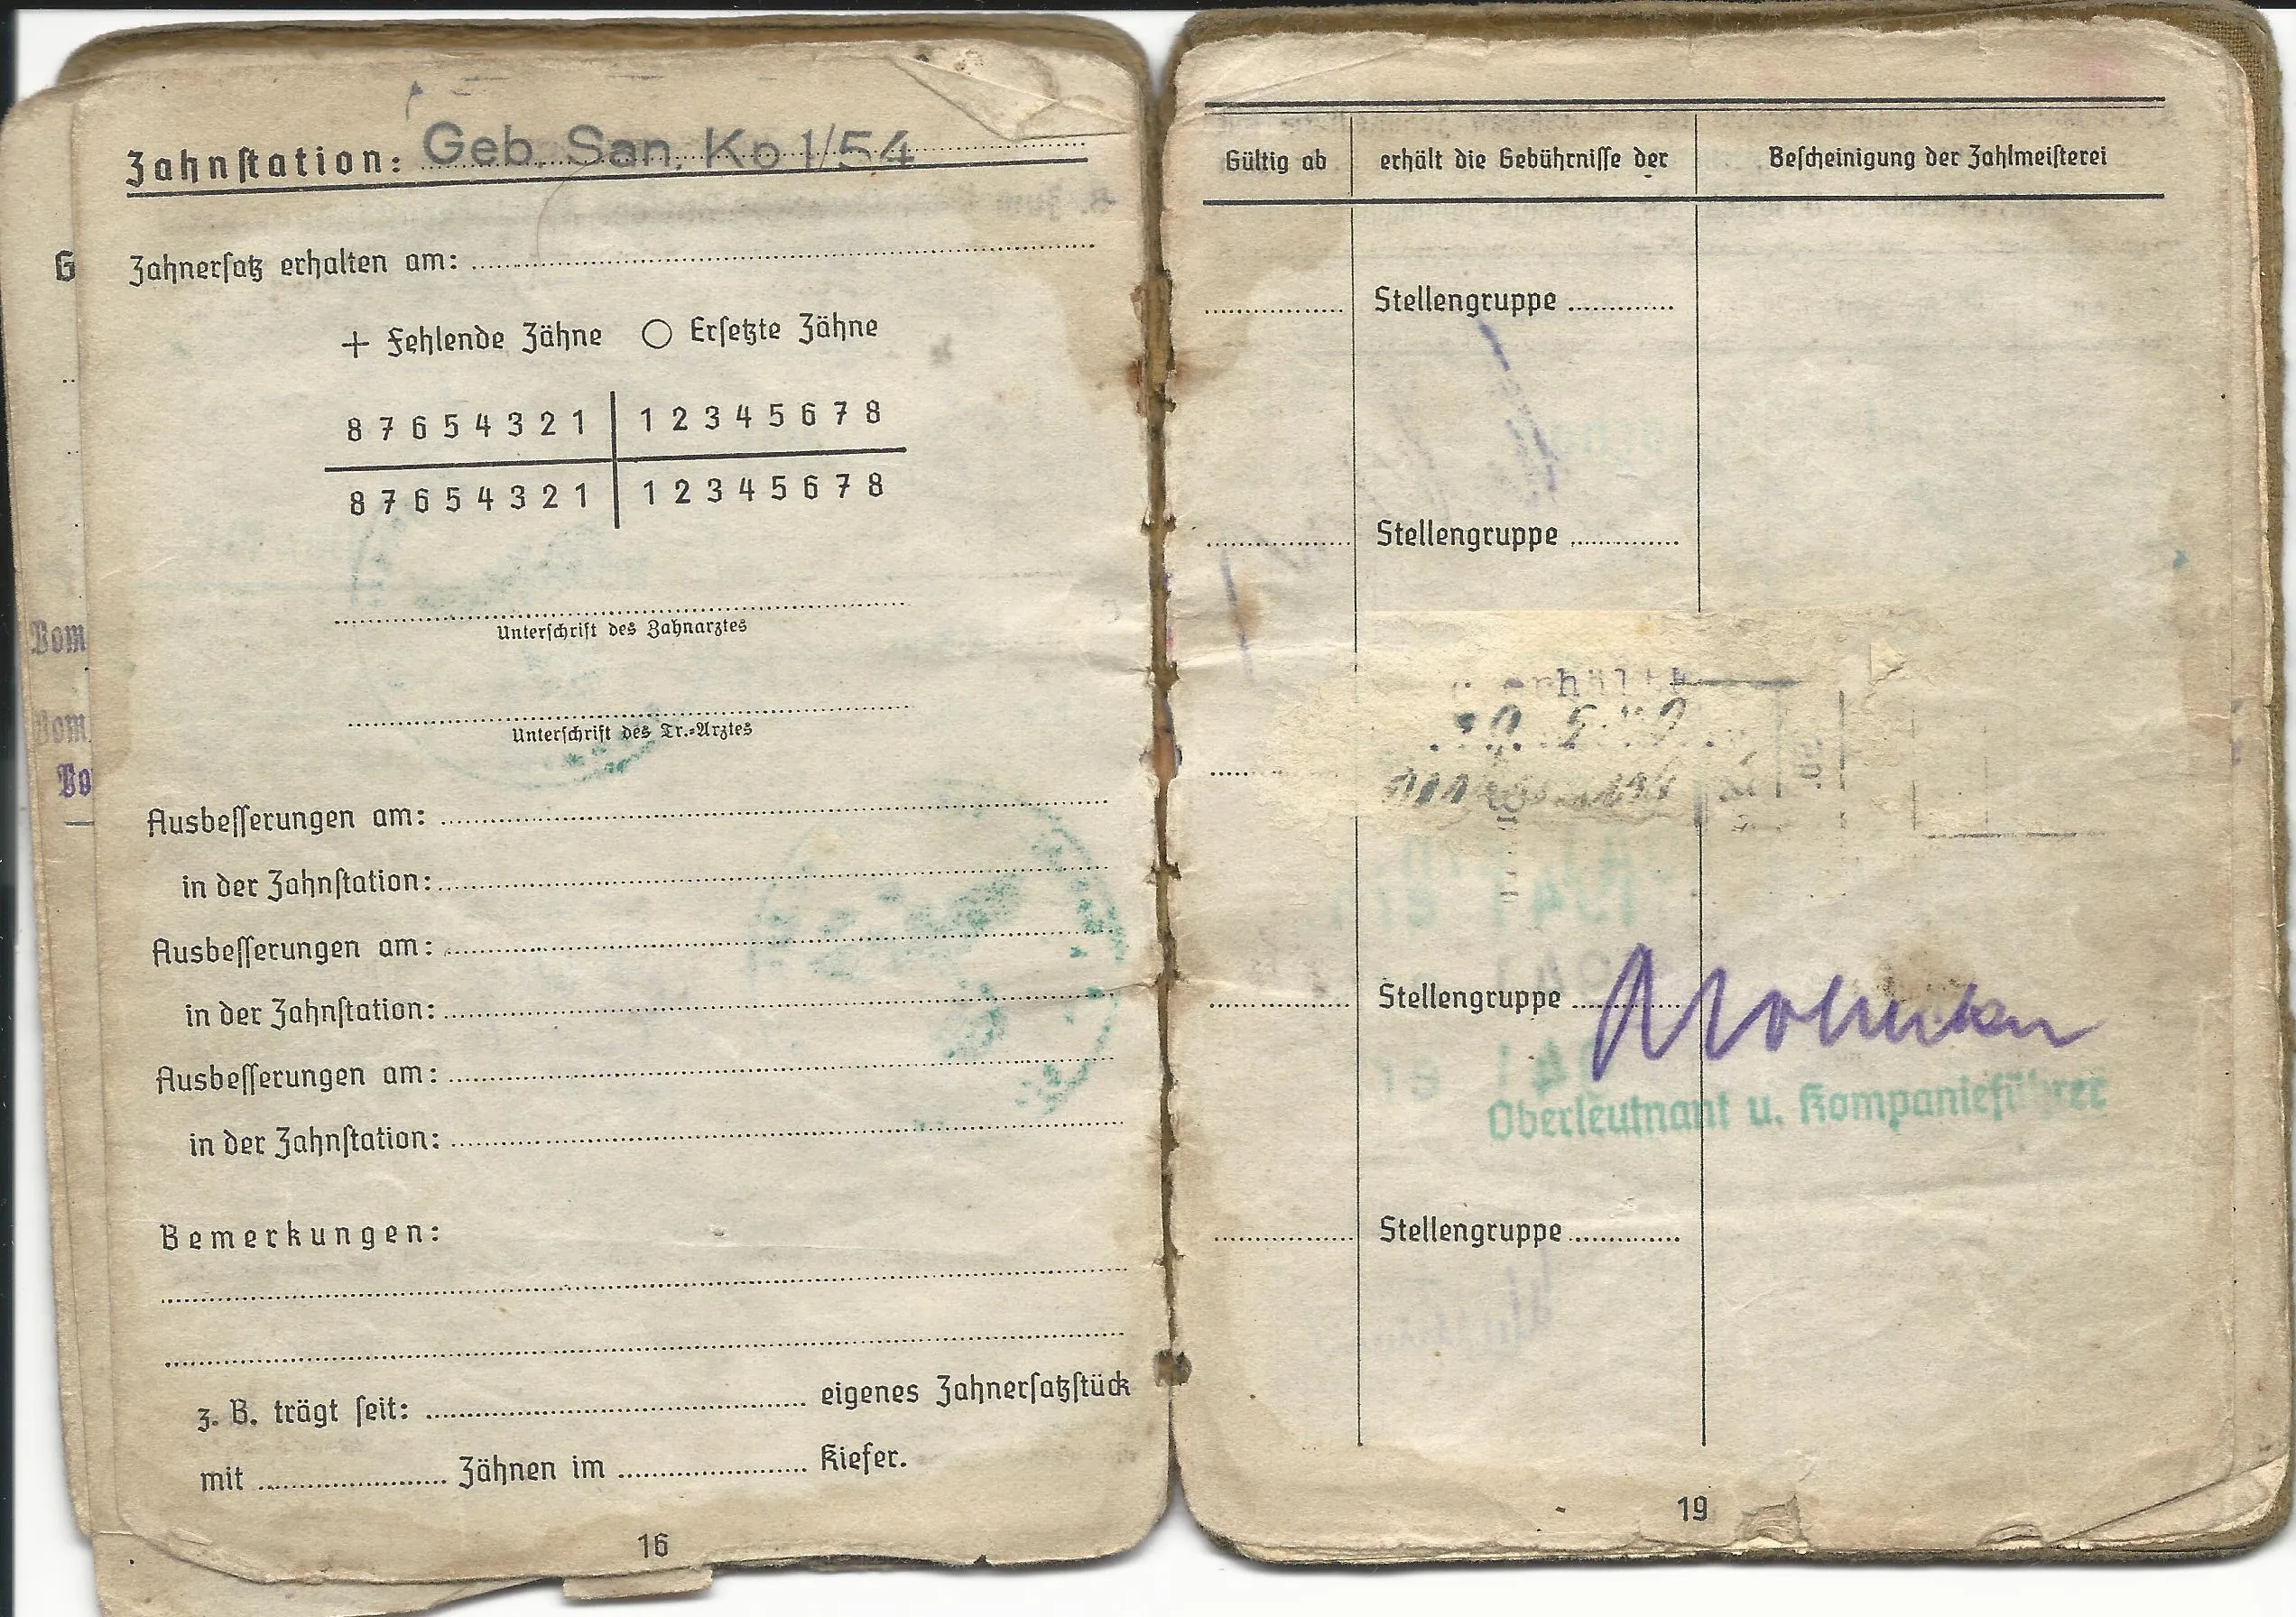 Zahnstation: Geb. San. Kp 1/54
Zahnersatz erhalten am:
+ Fehlende Zähne ○ Ersetzte Zähne
8 7 6 5 4 3 2 1 | 1 2 3 4 5 6 7 8
8 7 6 5 4 3 2 1 | 1 2 3 4 5 6 7 8
Unterschrift des Zahnarztes
Unterschrift des Tr.-Arztes
Ausbesserungen am:
in der Zahnstation:
Ausbesserungen am:
in der Zahnstation:
Ausbesserungen am:
in der Zahnstation:
Bemerkungen:
z. B. trägt seit: eigenes Zahnersatzstück
mit Zähnen im Kiefer.
16
G
Vom
Vom
Vo
Gültig ab erhält die Gebührnisse der Bescheinigung der Zahlmeisterei
Stellengruppe
Stellengruppe
Stellengruppe
Oberleutnant u. Kompanieführer
Stellengruppe
19